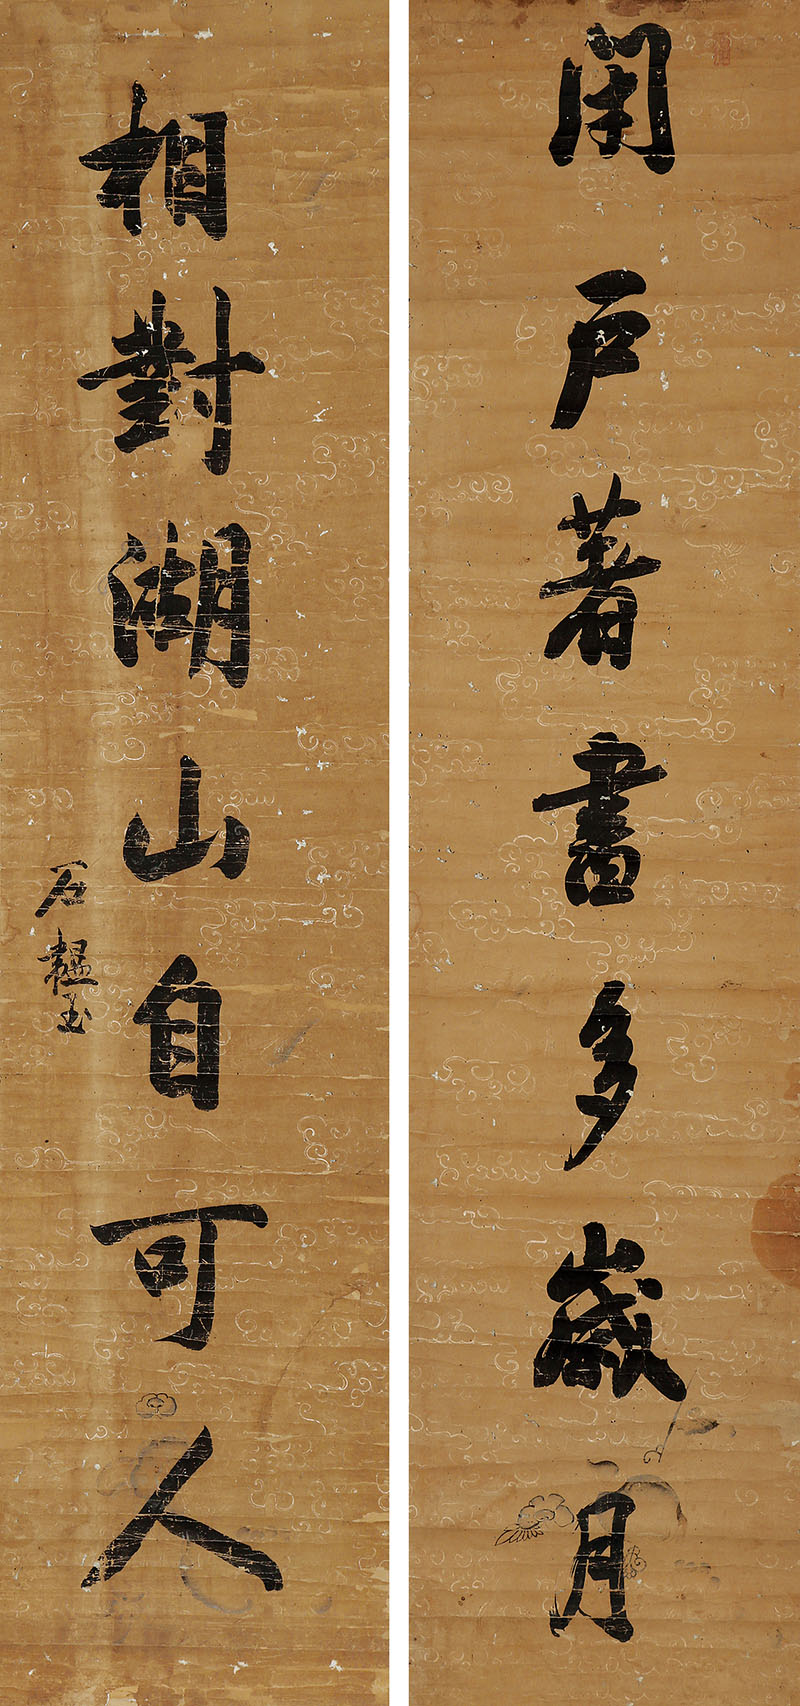 閉戶著書多歲月
相對湖山自可人
石韞玉